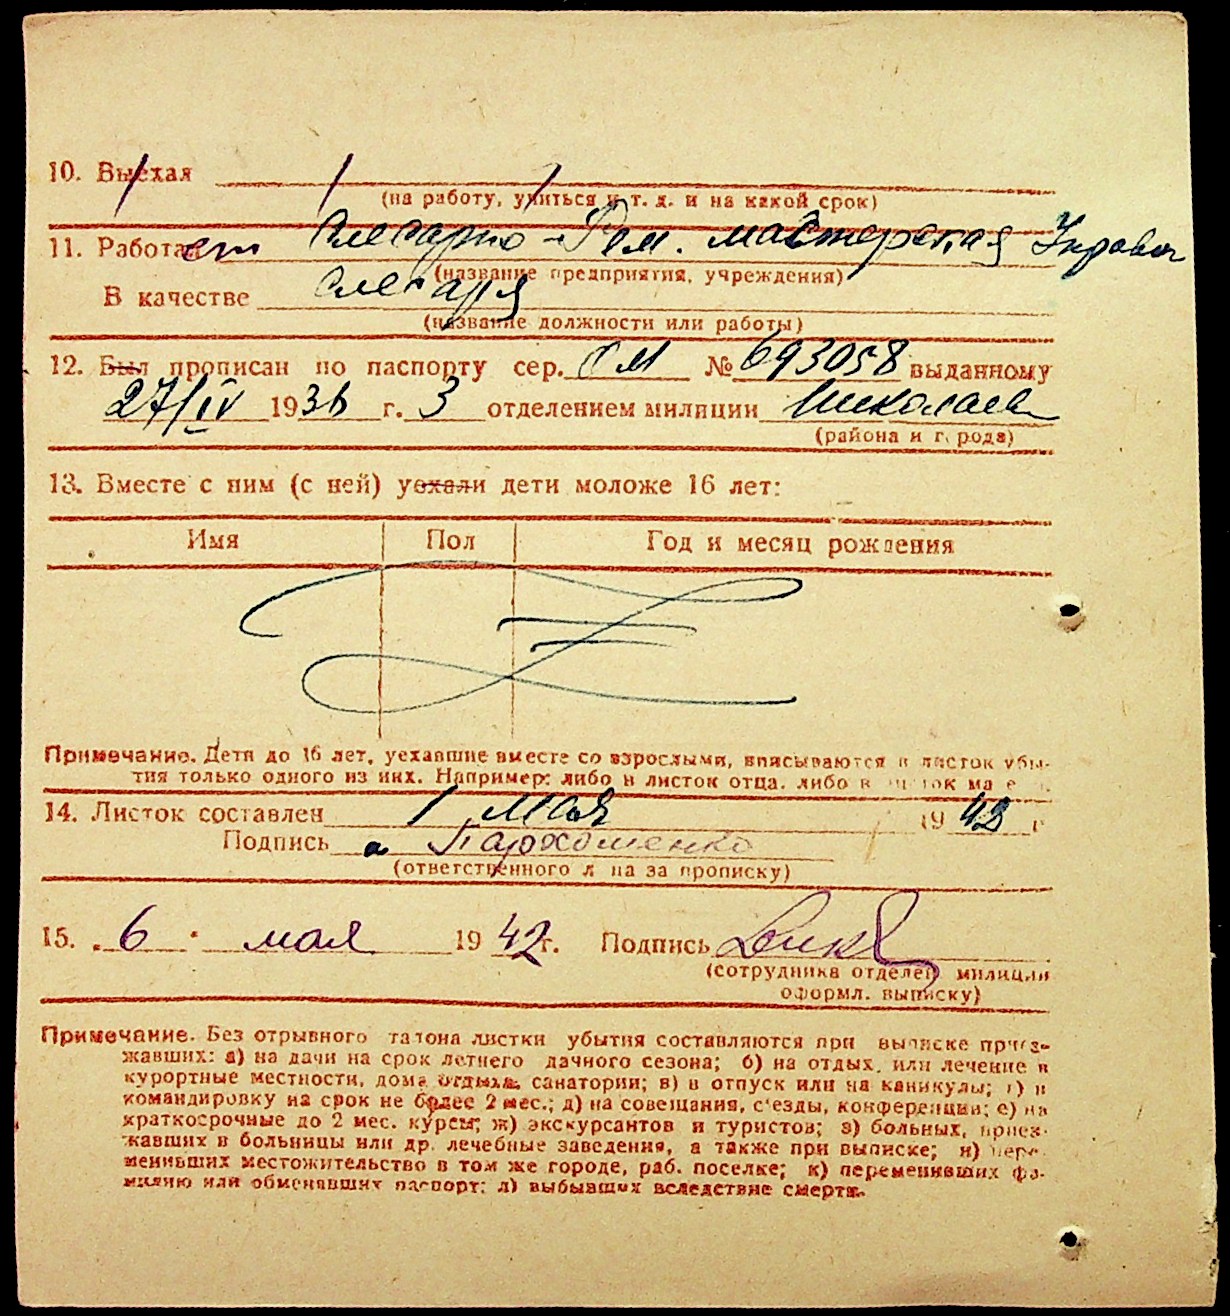 10. Выехал
(на работу, учиться и т. д. и на какой срок)
11. Работает Слесарно-Рем. мастерская
(название предприятия, учреждения)
В качестве слесаря
(название должности или работы)
12. Был прописан по паспорту сер. № 693058 выданному
27/IV 1936 г. 3 отделением милиции Николаев
(района и города)
13. Вместе с ним (с ней) уехали дети моложе 16 лет:
Имя Пол Год и месяц рождения
Примечание. Дети до 16 лет, уехавшие вместе со взрослыми, вписываются в листок убы-
тия только одного из них. Например: либо в листок отца, либо в листок ма
14. Листок составлен 1 мая 1942 г
Подпись Пархоменко
(ответственного лица за прописку)
15. 6 " мая 1942 г. Подпись
(сотрудника отделен милиции
оформл. выписку)
Примечание. Без отрывного талона листки убытия составляются при выписке приез-
жавших: а) на дачи на срок летнего дачного сезона; б) на отдых, или лечение в
курортные местности, дома отдыха, санатории; в) в отпуск или на каникулы; г) в
командировку на срок не более 2 мес.; д) на совещания, с'езды, конференции; е) на
краткосрочные до 2 мес. курсы; ж) экскурсантов и туристов; з) больных, приез-
жавших в больницы или др. лечебные заведения, а также при выписке; и) пере-
менивших местожительство в том же городе, раб. поселке; к) переменивших фа-
милию или обменявших паспорт; л) выбывших вследствие смерти.